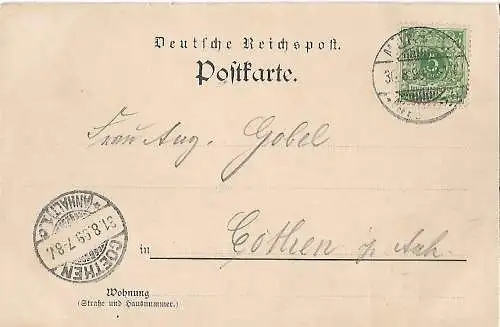 Deutsche Reichspost.
Postkarte.
5
Frau Aug. Gobel
in Cöthen i/ Anh.
COETHEN
(ANHALT)
31.8.99.7-8V.
Wohnung
(Straße und Hausnummer.)